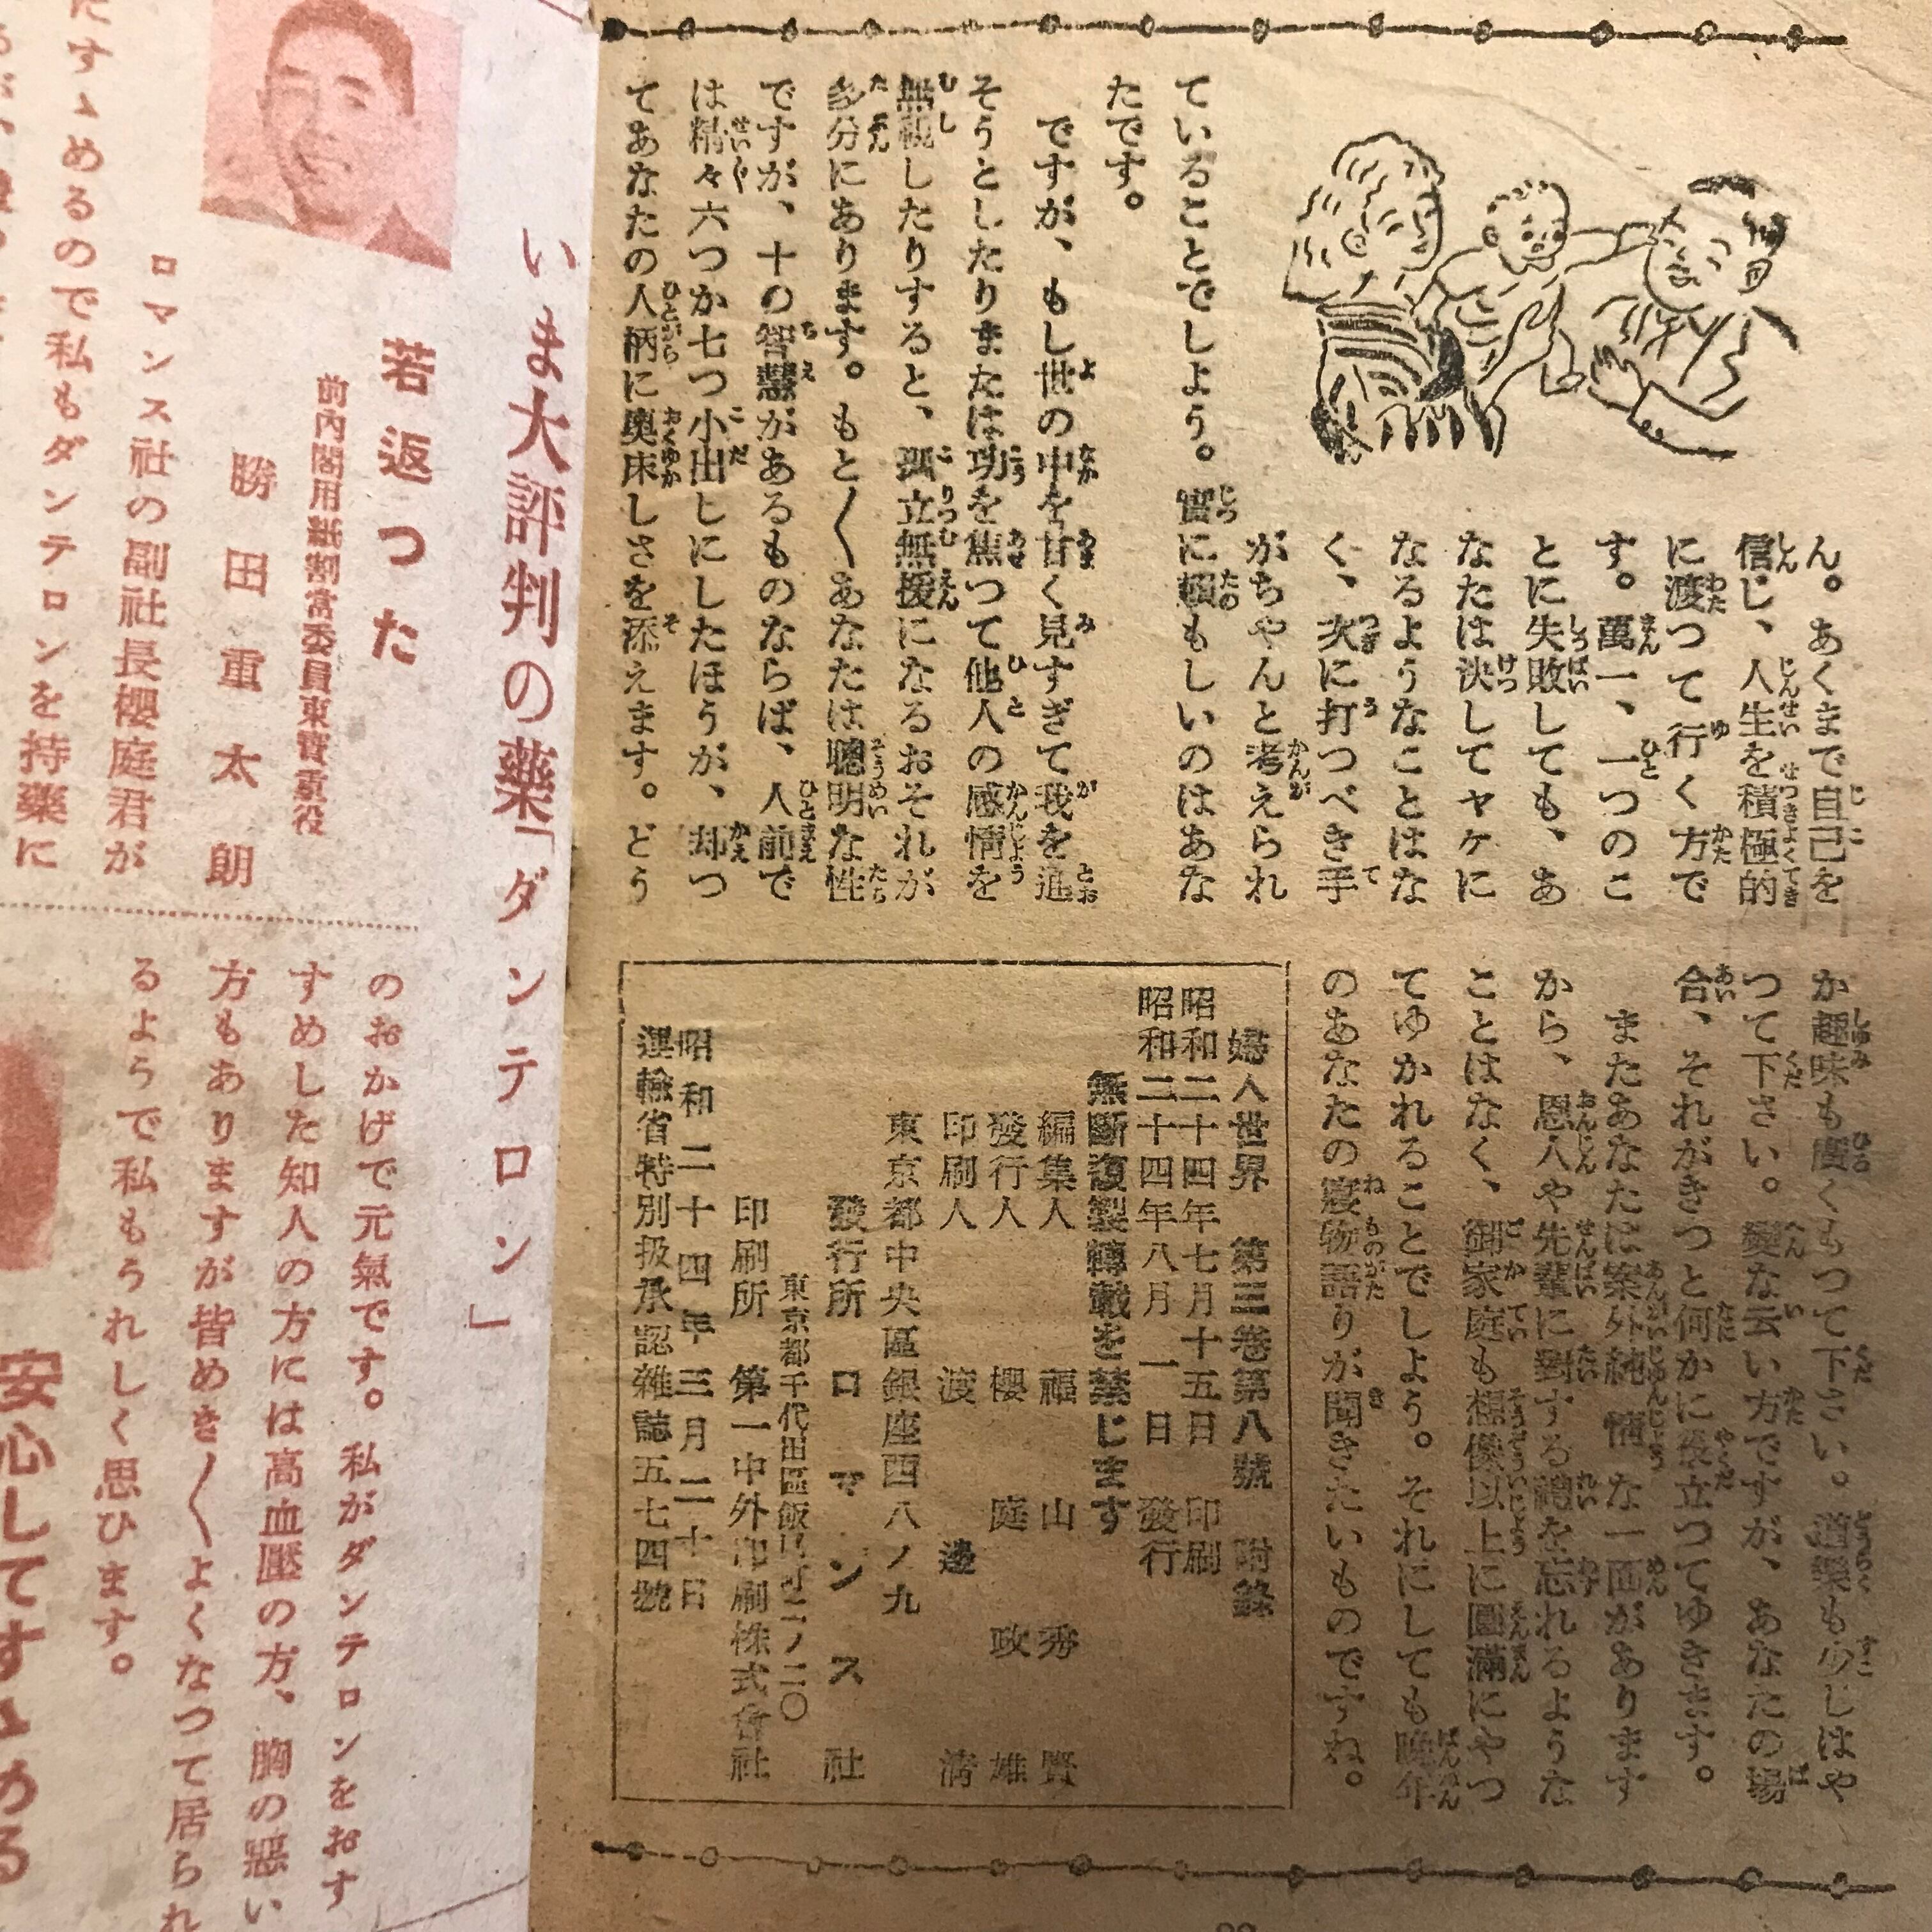 ん。あくまで自己を
信じ、人生を積極的
に渡つて行く方で
す。萬一、一つのこ
とに失敗しても、あ
なたは決してヤケに
なるようなことはな
く、次に打つべき手
がちやんと考えられ
ていることでしよう。實に頼もしいのはあな
たです。
ですが、もし世の中を甘く見すぎて我を通
そうとしたりまたは功を焦つて他人の感情を
無視したりすると、孤立無援になるおそれが
多分にあります。もと〳〵あなたは聰明な性
ですが、十の智慧があるものならば、人前で
は精々六つか七つ小出しにしたほうが、却つ
てあなたの人柄に奥床しさを添えます。どう
か趣味も廣くもつて下さい。道樂も少しはや
つて下さい。變な云い方ですが、あなたの場
合、それがきつと何かに役立つてゆきます。
またあなたは案外純情な一面があります
から、恩人や先輩に對する禮を忘れるような
ことはなく、御家庭も想像以上に圓滿にやつ
てゆかれることでしよう。それにしても晩年
のあなたの寢物語りが聞きたいものですね。
婦人世界 第三卷第八號 附錄
昭和二十四年七月十五日 印刷
昭和二十四年八月一日 發行
無斷復製轉載を禁じます
編集人 福山秀賢
發行人 櫻庭政雄
印刷人 渡邊清
東京都中央區銀座西八ノ九
發行所 ロマンス社
東京都千代田區飯田町二ノ二〇
印刷所 第一中外印刷株式會社
昭和二十四年三月二十日
運輸省特別扱承認雜誌五七四號
いま大評判の藥「ダンテロン」
若返つた
前内閣用紙割當委員東寶重役
勝田重太郎
ロマンス社の副社長櫻庭君が
すゝめるので私もダンテロンを持藥に
のおかげで元氣です。私がダンテロンをおす
すめした知人の方には高血壓の方、胸の惡い
方もありますが皆めき〳〵よくなつて居られ
るようで私もうれしく思ひます。
安心してすゝめる